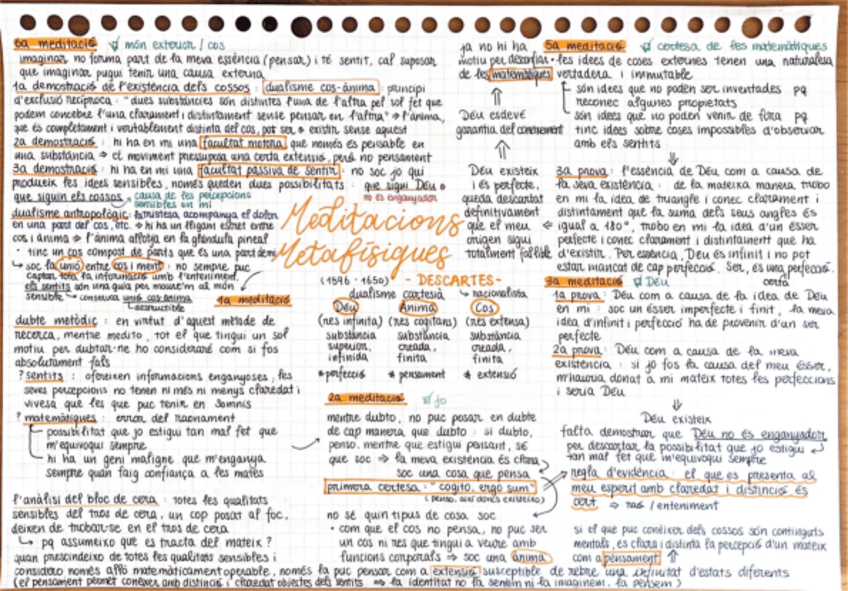 6a meditació món exterior / cos
imaginar no forma part de la meva essència (pensar) i té sentit, cal suposar
que imaginar pugui tenir una causa externa
1a demostració de l'existència dels cossos : dualisme cos-ànima : principi
d'exclusió recíproca : "dues substàncies són distintes l'una de l'altra pel sol fet que
podem concebre l'una clarament i distintament sense pensar en l'altra" → l'ànima,
que és completament i veritablement distinta del cos, pot ser o existir sense aquest
2a demostració : hi ha en mi una facultat motora que només és pensable en
una substància → el moviment pressuposa una certa extensió, però no pensament
3a demostració : hi ha en mi una facultat passiva de sentir : no soc jo qui
produeix les idees sensibles, només queden dues possibilitats : que sigui Déu o
no és enganyador
que siguin els cossos → causa de les percepcions
sensibles en mi
dualisme antropològic : la tristesa acompanya el dolor
en una part del cos, etc. → hi ha un lligam estret entre
cos i ànima → l'ànima allotja en la glàndula pineal
· tinc un cos compost de parts que és una part de mi
↳ soc la unió entre cos i ment : no sempre puc
captar tota la informació amb l'enteniment,
els sentits són una guia per moure'm al món
sensible ↳ conservar unió cos-ànima
↳ destructible
Meditacions
Metafísiques
(1596 - 1650) - DESCARTES -
dualisme cartesià ↳ racionalista
Déu Ànima Cos
(res infinita) (res cogitans) (res extensa)
substància substància substància
superior, creada, creada,
infinida finita finita
* perfecció * pensament * extensió
1a meditació
dubte metòdic : en virtut d'aquest mètode de
recerca, mentre medito, tot el que tingui un sol
motiu per dubtar-ne ho consideraré com si fos
absolutament fals
? sentits : ofereixen informacions enganyoses, les
seves percepcions no tenen ni més ni menys claredat i
vivesa que les que puc tenir en somnis
? matemàtiques : error del raonament
possibilitat que jo estigui tan mal fet que
m'equivoqui sempre
hi ha un geni maligne que m'enganya
sempre quan faig confiança a les mates
l'anàlisi del bloc de cera : totes les qualitats
sensibles del tros de cera, un cop posat al foc,
deixen de trobar-se en el tros de cera
↳ pq assumeixo que es tracta del mateix ?
quan prescindeixo de totes les qualitats sensibles i
considero només allò matemàticament operable, només la puc pensar com a extensió susceptible de rebre una infinitat d'estats diferents
(el pensament permet conèixer amb distinció i claredat objectes dels sentits ⇒ la identitat no la sentim ni la imaginem, la pensem)
2a meditació jo
mentre dubto, no puc posar en dubte
de cap manera que dubto : si dubto,
penso, mentre que estigui pensant, sé
que soc → la meva existència és clara,
soc una cosa que pensa
primera certesa : "cogito, ergo sum"
(penso, així doncs existeixo)
no sé quin tipus de cosa soc
· com que el cos no pensa, no puc ser
un cos ni res que tingui a veure amb
funcions corporals ⇒ soc una ànima
5a meditació certesa de les matemàtiques
· les idees de coses externes tenen una naturalesa
vertadera i immutable
són idees que no poden ser inventades pq
reconec algunes propietats
són idees que no poden venir de fora pq
tinc idees sobre coses impossibles d'observar
amb els sentits
3a prova : l'essència de Déu com a causa de
la seva existència : de la mateixa manera trobo
en mi la idea de triangle i conec clarament i
distintament que la suma dels seus angles és
igual a 180°, trobo en mi la idea d'un ésser
perfecte i conec clarament i distintament que ha
d'existir. Per essència, Déu és infinit i no pot
estar mancat de cap perfecció. Ser, és una perfecció.
ja no hi ha
motiu per desconfiar
de les matemàtiques
Déu esdevé
garantia del coneixement
Déu existeix
i és perfecte,
queda descartat
definitivament
que el meu
origen sigui
totalment fal·lible
3a meditació Déu certa
1a prova : Déu com a causa de la idea de Déu
en mi : soc un ésser imperfecte i finit, la meva
idea d'infinit i perfecció ha de provenir d'un ser
perfecte
2a prova : Déu com a causa de la meva
existència : si jo fos la causa del meu ésser,
m'hauria donat a mi mateix totes les perfeccions
i seria Déu
Déu existeix
falta demostrar que Déu no és enganyador
per descartar la possibilitat que jo estigui
tan mal fet que m'equivoqui sempre
regla d'evidència : el que es presenta al
meu esperit amb claredat i distinció és
cert → raó / enteniment
si el que puc conèixer dels cossos són continguts
mentals, és clara i distinta la percepció d'un mateix
com a pensament